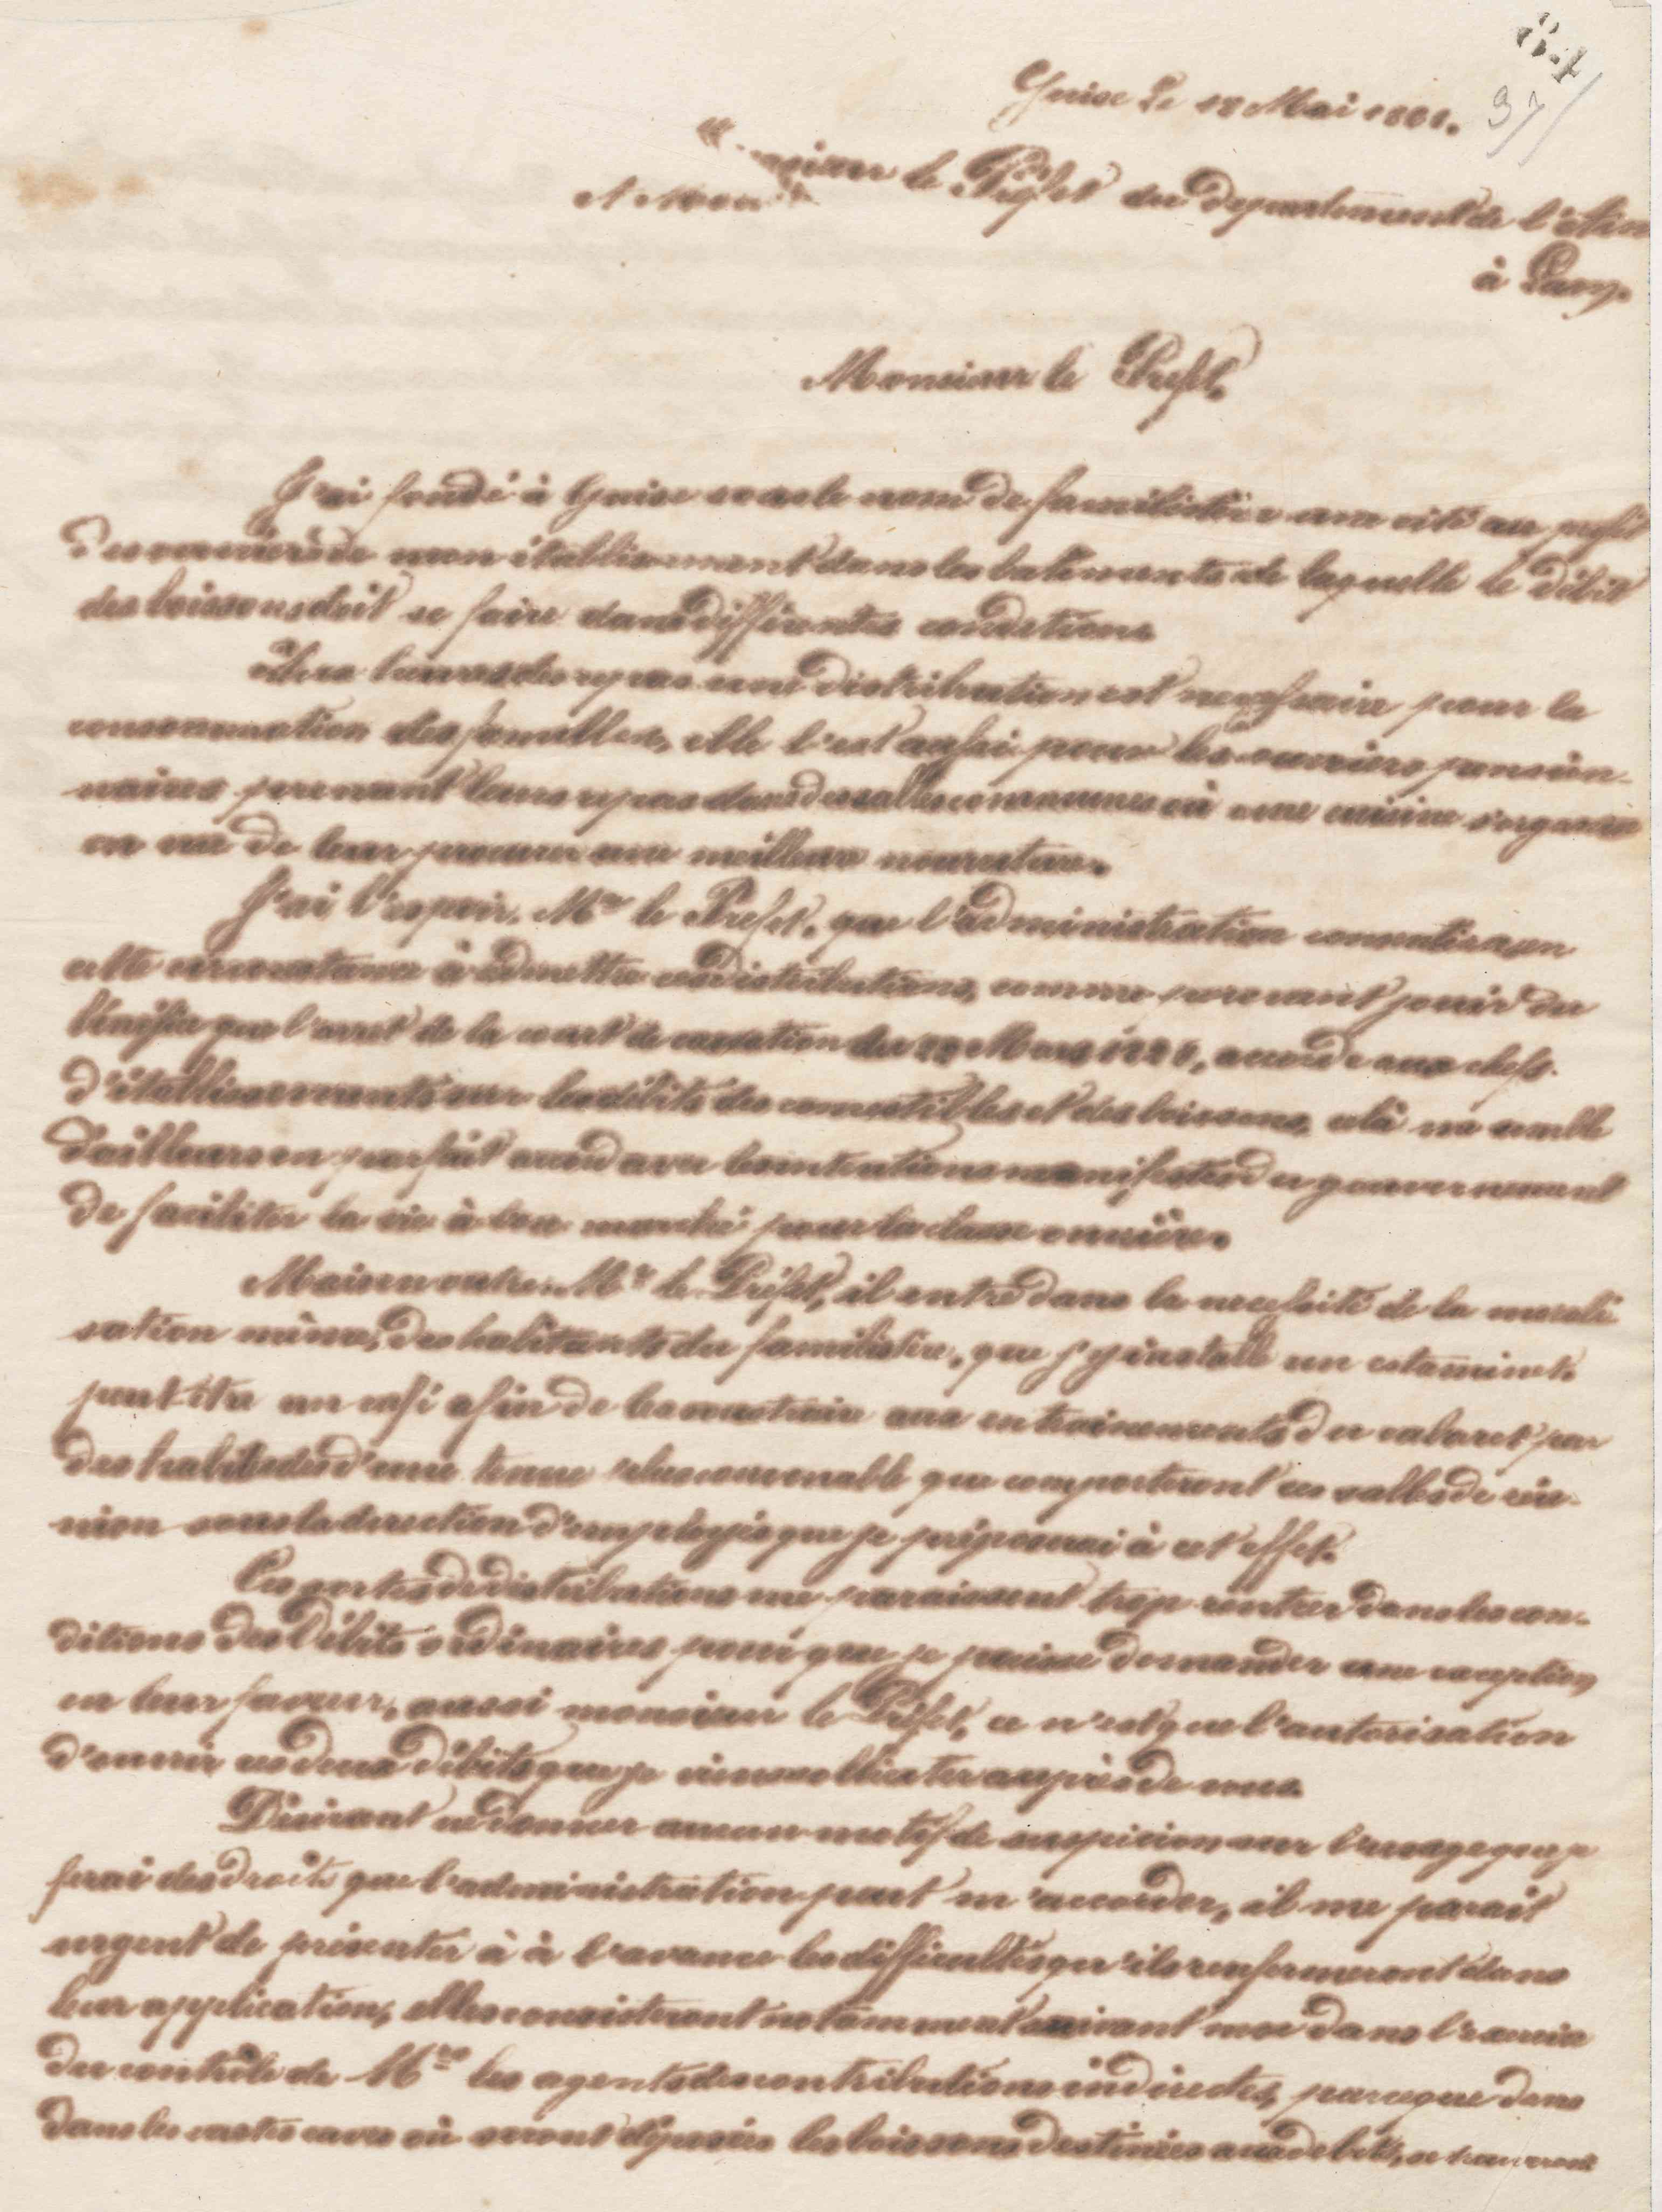 84
37
Guise Le 18 Mai
A Monsieur le Préfet du Departement de l'Aisne
à Laon.
Monsieur le Prefet,
J'ai fondé à Guise sous le nom de familistère une cité au profit
des ouvriers de mon établissement dans les batiments de laquelle le débit
des boissons doit se faire dans differentes conditions.
Aux heures des repas une distribution est necessaire pour la
consommation des familles, elle l'est aussi pour les ouvriers pension-
naires prenant leurs repas dans des salles communes où une cuisine s'organise
en vue de leur procurer une meilleure nourriture.
J'ai l'espoir, Mr le Prefet, que l'administration consentira en
cette circonstance à admettre ces distributions, comme pouvant jouir du
bénéfice que l'arret de la court de cassation du Mars accorde aux chefs
d'établissements sur les débits des comestibles et des boissons, celà me semble
d'ailleurs en parfait accord avec les intentions manifestes du gouvernement
de faciliter la vie à bon marché pour la classe ouvrière.
Mais en outre, Mr le Préfet, il entre dans la necessité de la morali-
sation même, des habitants du familistère, que j'y installe un estaminet,
peut être un café afin de les soustraire aux entrainements du cabaret par
des habitudes d'une tenue plus convenable que comporteront ces salles de réu-
nion sous la direction d'employés que je préposerai à cet effet.
Ces sortes de distributions me paraissent trop rentrer dans les con-
ditions des débits ordinaires pour que je puisse demander une exception
en leur faveur, aussi monsieur le Préfet, ce n'est que l'autorisation
d'ouvrir ces deux débits que je viens solliciter auprès de vous.
Désirant ne donner aucun motif de suspicion sur l'usage que je
ferai des droits que l'administration peut m'accorder, il me parait
urgent de présenter à à l'avance les difficultés qu'ils renfermeront dans
leur application, elles consisteront notamment suivant moi dans l'exercice
du contrôle de Mrs les agents des contributions indirectes, parceque dans
dans les vastes caves où seront déposées les boissons destinées aux debits, se trouveront